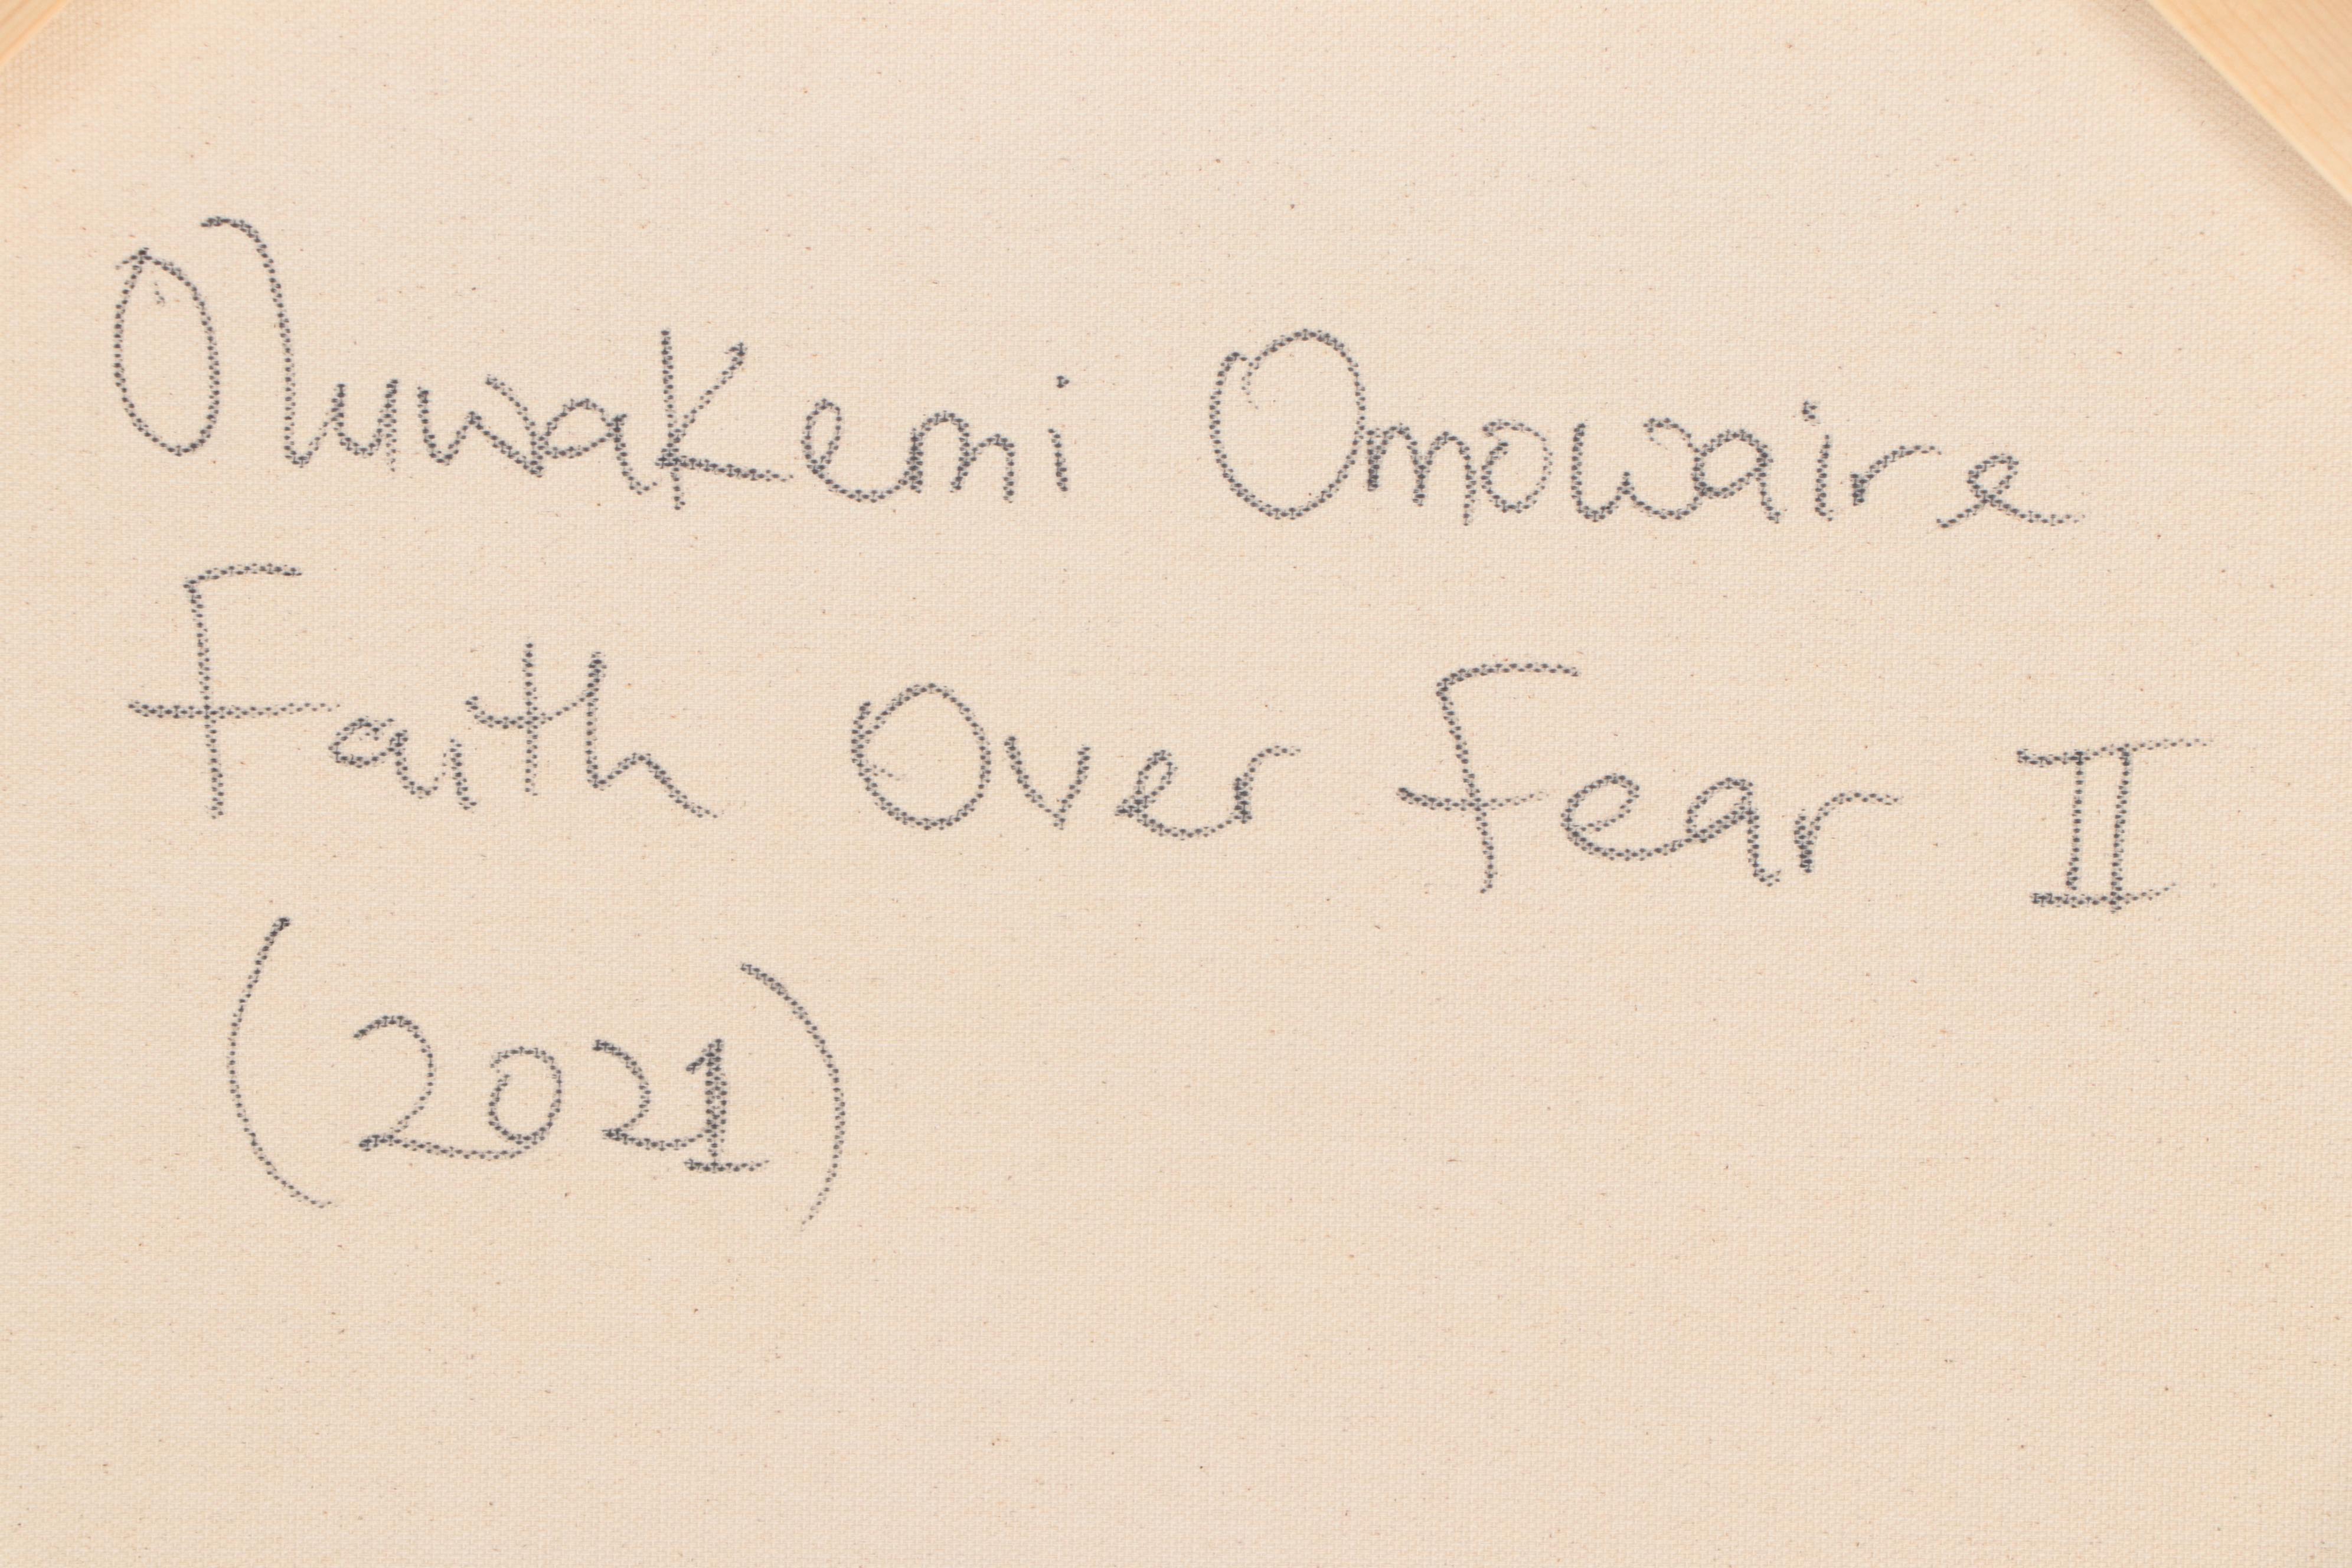 Oluwakemi Omowaire
Faith Over Fear II
(2021)